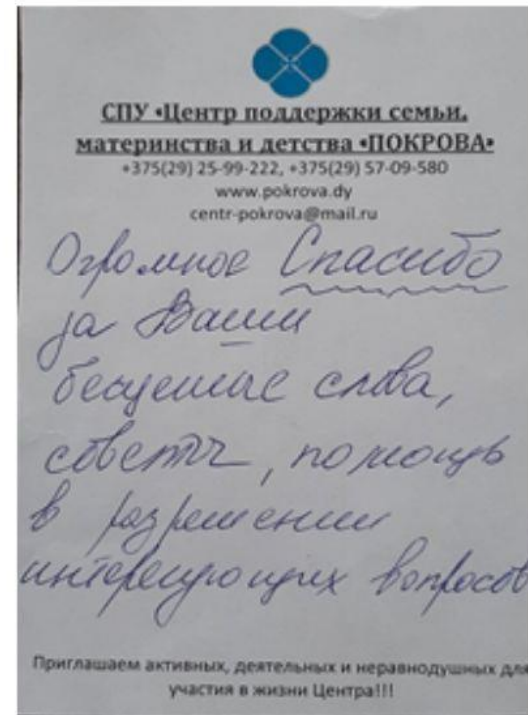 СПУ «Центр поддержки семьи,
материнства и детства «ПОКРОВА»
+375(29) 25-99-222, +375(29) 57-09-580
www.pokrova.dy
centr-pokrova@mail.ru
Огромное Спасибо
за Ваши
бесценные слова,
советы, помощь
в разрешении
интересующих вопросов
Приглашаем активных, деятельных и неравнодушных для
участия в жизни Центра!!!